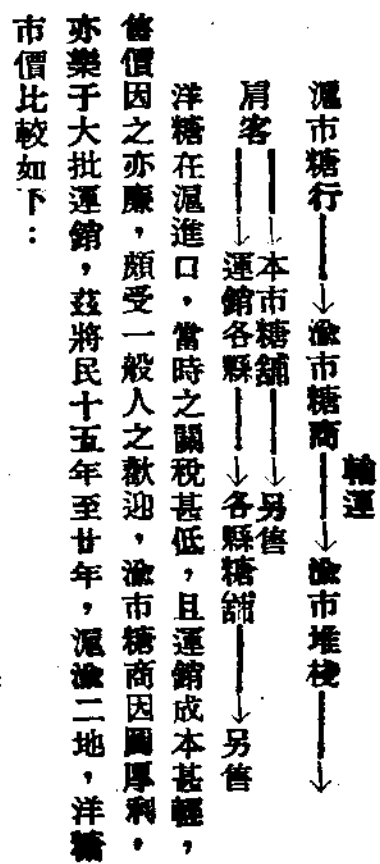 滬市糖行——→渝市糖商——→渝市堆棧——→
輸運
肩客——→本市糖舖——→另售
——→運銷各縣——→各縣糖舖——→另售
洋糖在滬進口，當時之關稅甚低，且運銷成本甚輕，
售價因之亦廉，頗受一般人之歡迎，渝市糖商因圖厚利，
亦樂于大批運銷，茲將民十五年至廿年，滬渝二地，洋糖
市價比較如下：